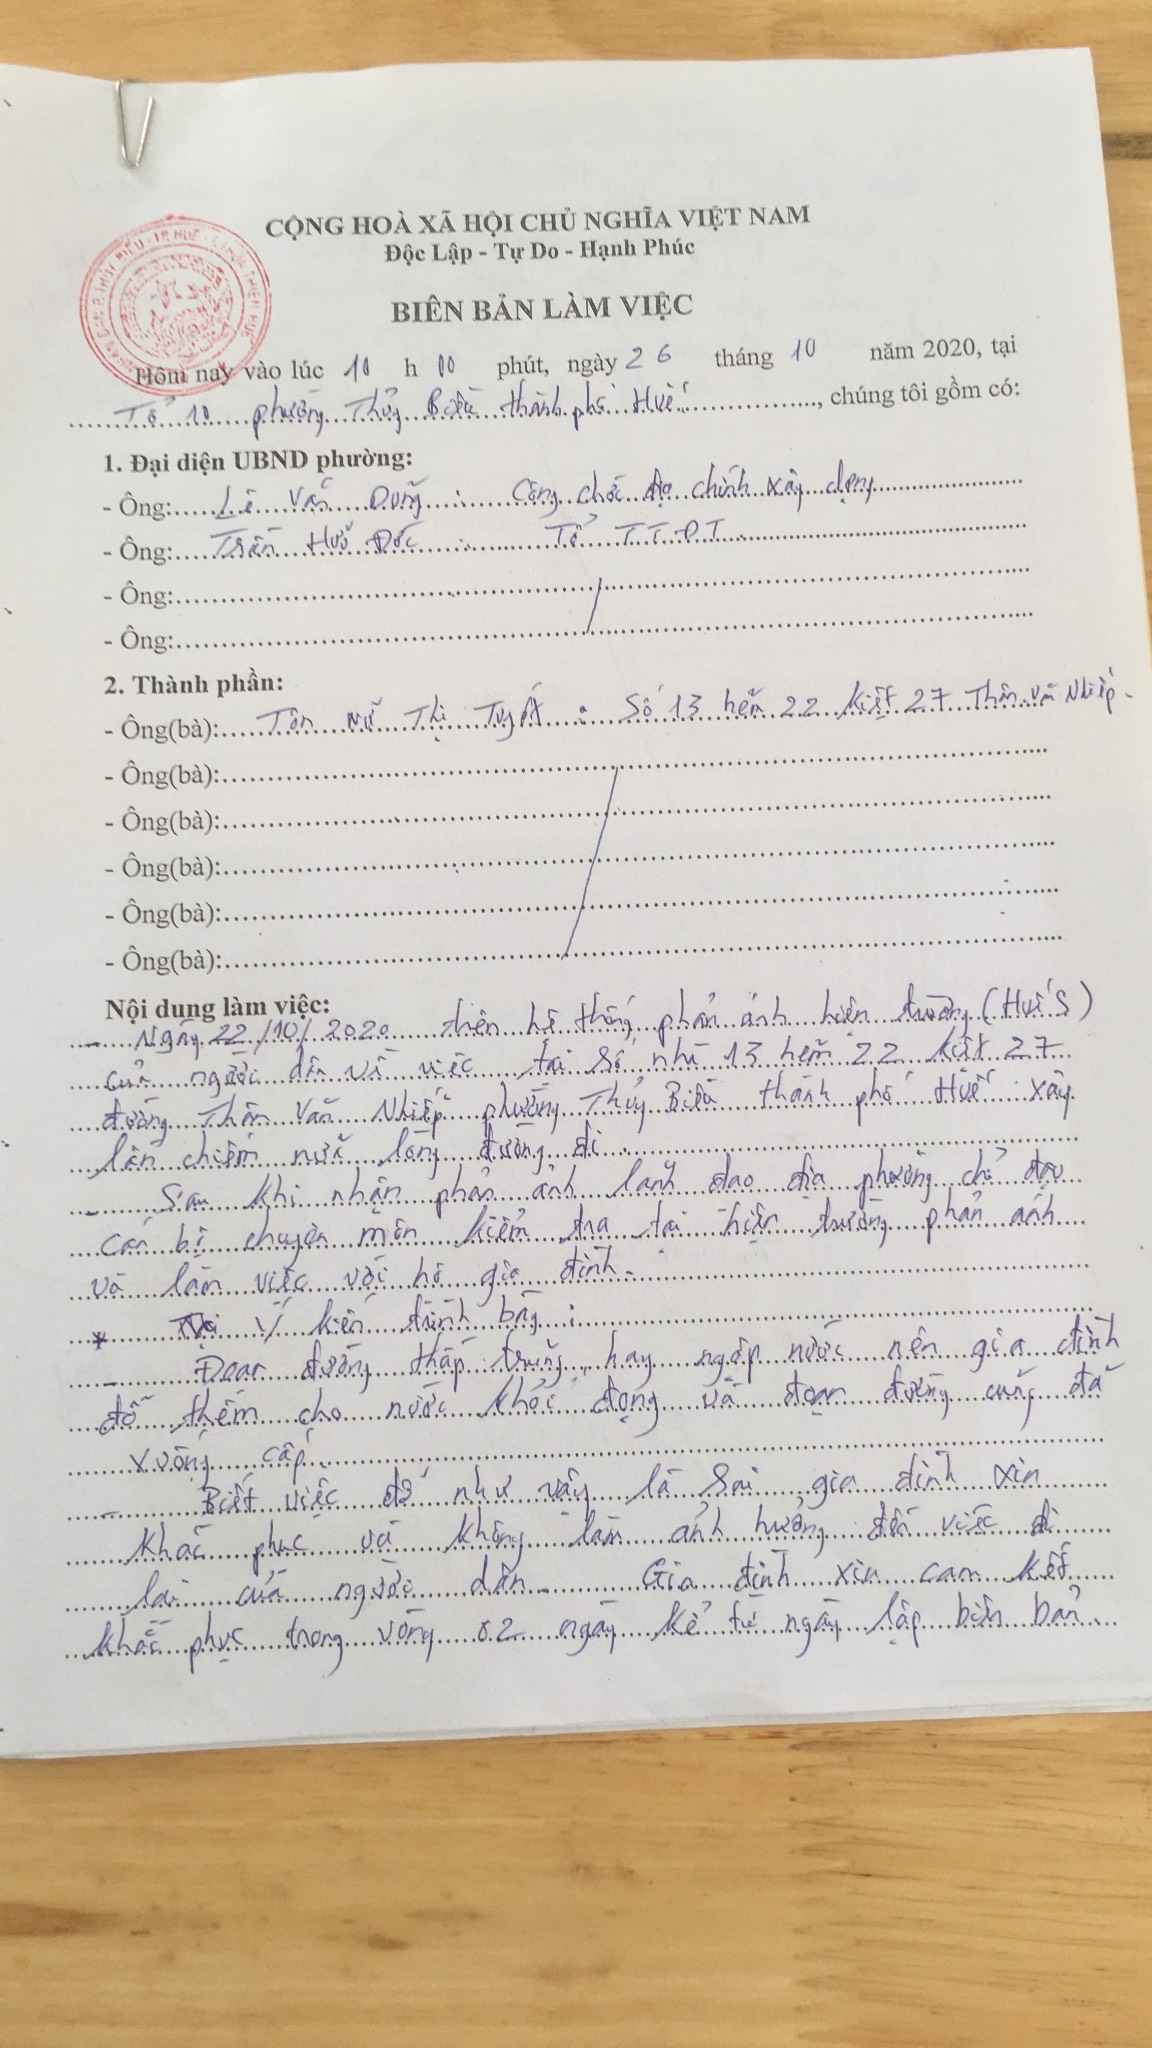 CỘNG HOÀ XÃ HỘI CHỦ NGHĨA VIỆT NAM
Độc Lập - Tự Do - Hạnh Phúc
BIÊN BẢN LÀM VIỆC
Hôm nay vào lúc 10 h 00 phút, ngày 26 tháng 10 năm 2020, tại
Tổ 10 phường Thủy Biều thành phố Huế, chúng tôi gồm có:
1. Đại diện UBND phường:
- Ông: Lê Văn Dũng : Công chức địa chính xây dựng
- Ông: Trần Hữu Đức : Tổ TTĐT
- Ông:
- Ông:
2. Thành phần:
- Ông(bà): Tôn Nữ Thị Tuyết : Số 13 hẻm 22 kiệt 27 Thân Văn Nhiếp.
- Ông(bà):
- Ông(bà):
- Ông(bà):
- Ông(bà):
- Ông(bà):
Nội dung làm việc:
- Ngày 22/10/2020 trên hệ thống phản ánh hiện trường (Huế S)
của người dân về việc tại số nhà 13 hẻm 22 kiệt 27
đường Thân Văn Nhiếp phường Thủy Biều thành phố Huế xây
lấn chiếm nửa lòng đường đi
- Sau khi nhận phản ánh lãnh đạo địa phường chỉ đạo
cán bộ chuyên môn kiểm tra tại hiện trường phản ánh
và làm việc với hộ gia đình.
* Ý kiến trình bày :
- Đoạn đường thấp trũng, hay ngập nước nên gia đình
đổ thêm cho nước khỏi đọng và đoạn đường cũng đã
xuống cấp.
- Biết việc đổ như vậy là sai, gia đình xin
khắc phục và không làm ảnh hưởng đến việc đi
lại của người dân. Gia đình xin cam kết
khắc phục trong vòng 02 ngày kể từ ngày lập biên bản